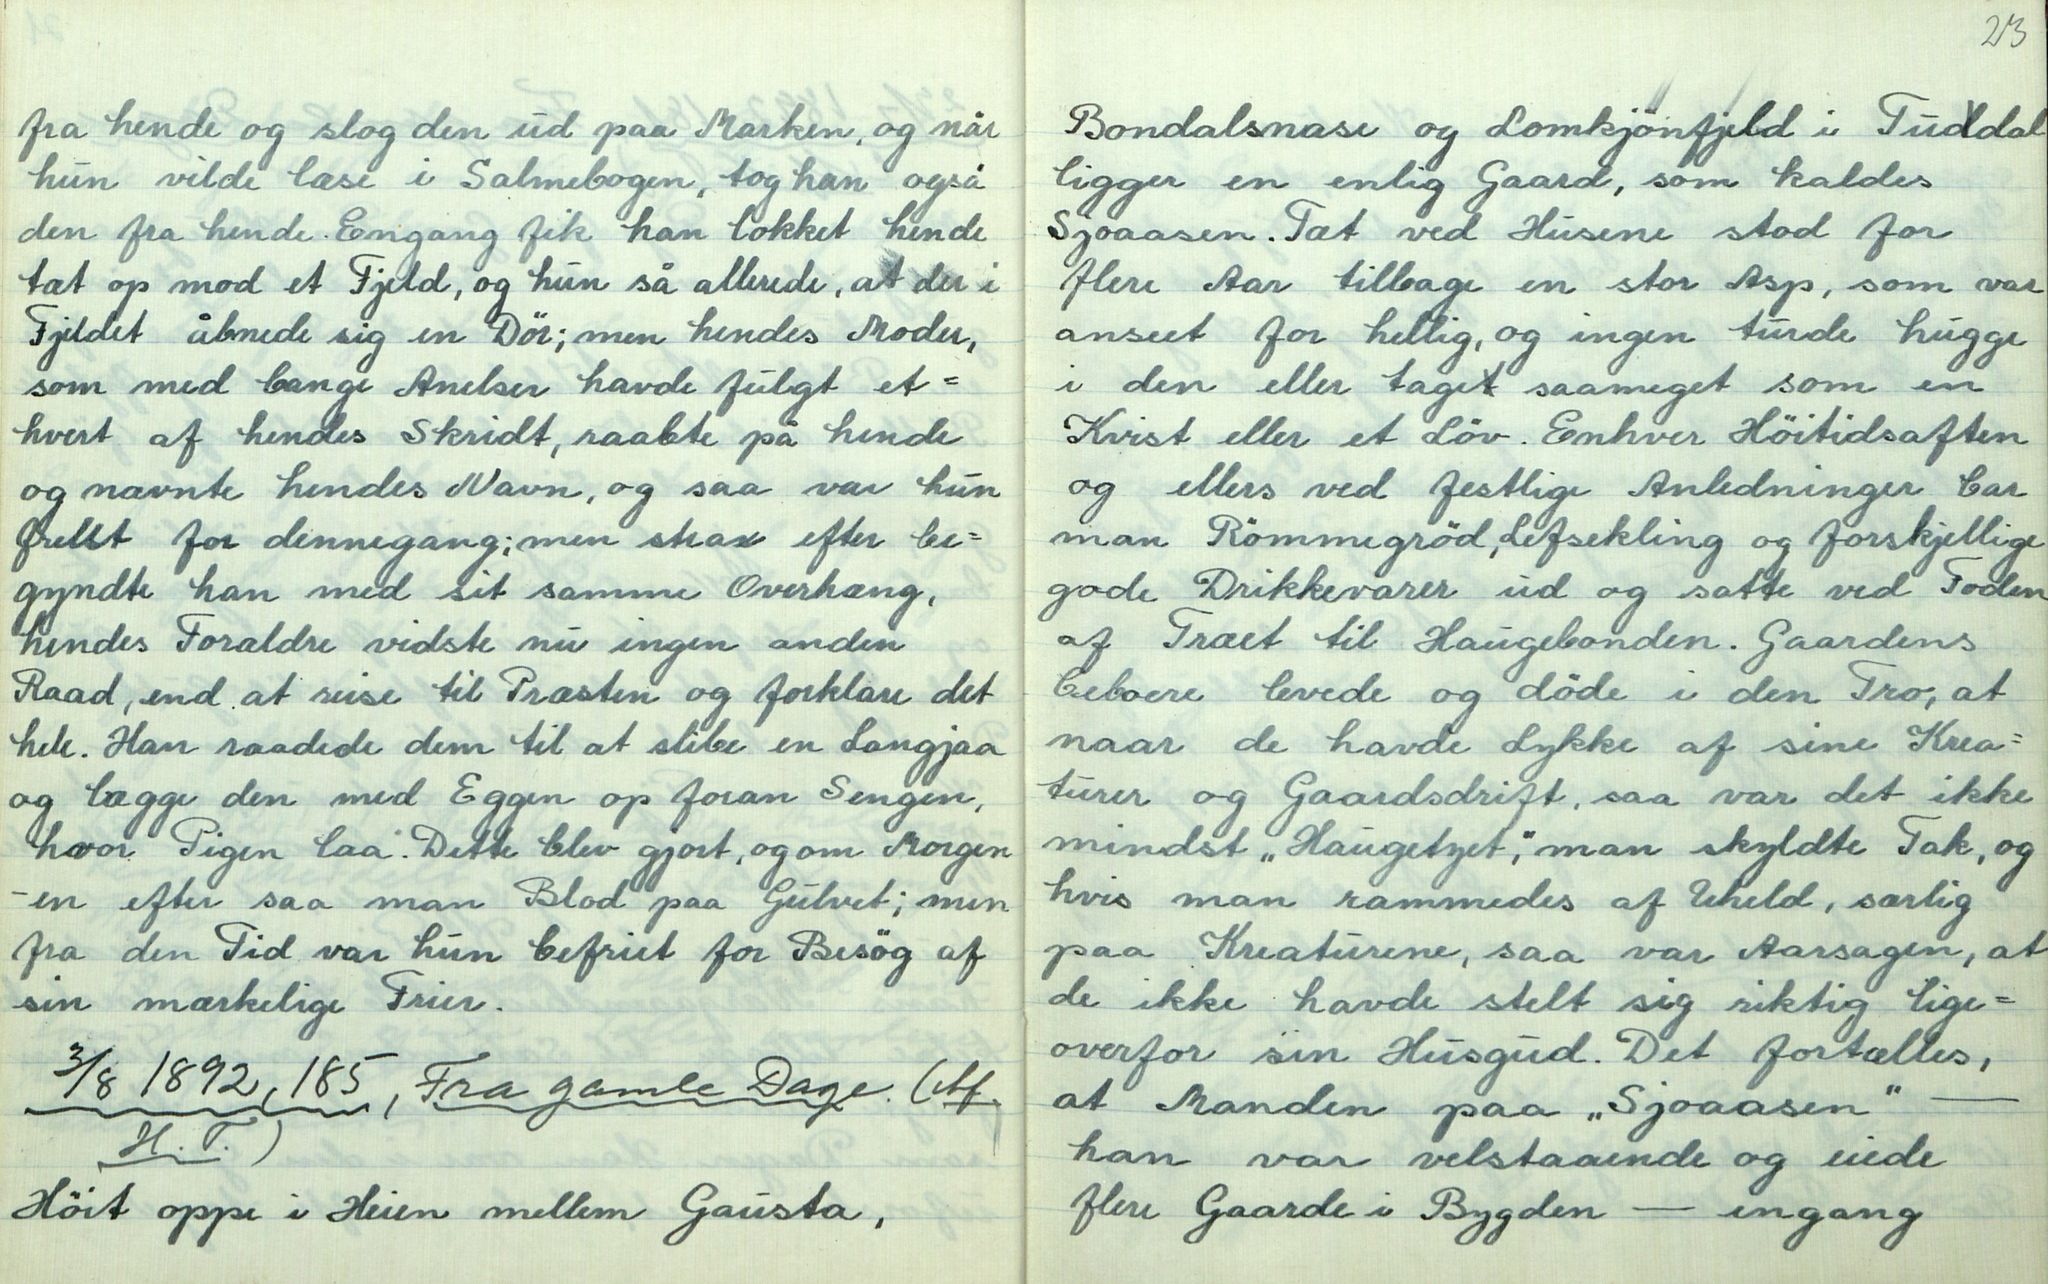 fra hende og slog den ud paa Marken, og når
hun vilde læse i Salmebogen, tog han også
den fra hende. Engang fik han lokket hende
tæt op mod et Fjeld, og hun så allerede, at der i
Fjeldet åbnede sig en Dör; men hendes Moder,
som med bange Anelser havde fulgt et=
hvert af hendes Skridt, raabte på hende
og nævnte hendes Navn, og saa var hun
frelst for dennegang; men strax efter be=
gyndte han med sit samme Overhæng,
hendes Forældre vidste nu ingen anden
Raad, end at reise til Præsten og forklare det
hele. Han raadede dem til at slibe en Langjaa
og lægge den med Eggen op foran Sengen,
hvor Pigen laa. Dette blev gjort, og om Morgen
-en efter saa man Blod paa Gulvet; men
fra den Tid var hun befriet for Besög af
sin mærkelige Frier.
3/8 1892, 185, Fra gamle Dage. (Af
H. T.)
Höit oppe i Heien mellem Gausta,
23
Bondalsnase og Lomkjönfjeld i Tuddal
ligger en enlig Gaard, som kaldes
Sjoaasen. Tæt ved Husene stod for
flere Aar tilbage en stor Asp, som var
anseet for hellig, og ingen turde hugge
i den eller taget saameget som en
Kvist eller et Löv. Enhver Höitidsaften
og ellers ved festlige Anledninger bar
man Römmegröd, Lefsekling og forskjellige
gode Drikkevarer ud og satte ved Foden
af Træet til Haugebonden. Gaardens
beboere levede og döde i den Tro, at
naar de havde Lykke af sine Krea=
turer og Gaardsdrift, saa var det ikke
mindst „Haugetyet," man skyldte Tak, og
hvis man rammedes af Uheld, særlig
paa Kreaturene, saa var Aarsagen, at
de ikke havde stelt sig riktig lige=
overfor sin Husgud. Det fortælles,
at Manden paa „Sjoaasen" —
han var velstaaende og eiede
flere Gaarde i Bygden — engang